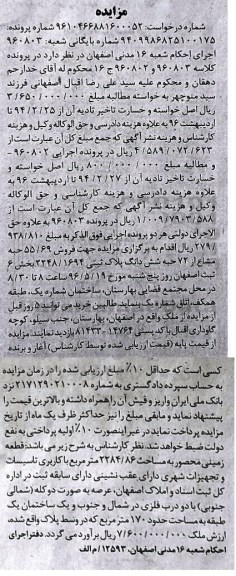 مزایده
شماره درخواست: ۹۶۱۰۴۶۶۸۸۱۶۰۰۰۵۲ شماره پرونده:
۹۴۰۹۹۸۶۸۲۵۱۰۰۱۷۵ شماره بایگانی شعبه: ۹۶۰۸۰۳
اجرای احکام شعبه ۱۶ مدنی اصفهان در نظر دارد در پرونده
کلاسه ۹۶۰۸۰۳ و ۹۶۰۸۰۲ ج ۱۶ محکوم له آقای خدارحم
دهقان و محکوم علیه سید علی رضا اقبال اصفهانی فرزند
سید منوچهر به خواسته مطالبه مبلغ ۳/۶۵۰/۰۰۰/۰۰۰
ریال اصل خواسته و خسارت تاخیر تادیه آن از ۹۴/۲/۲۵ تا
اردیبهشت ۹۶ به علاوه هزینه دادرسی و حق الوکاله وکیل و هزینه
کارشناس و هزینه نشر آگهی که جمع کل آن عبارت است از
۴/۵۸۹/۰۷۲/۶۲۳ ریال در پرونده اجرایی ۹۶۰۸۰۲
و مطالبه مبلغ ۸۰۰/۰۰۰/۰۰۰ ریال اصل خواسته و
خسارت تاخیر تادیه آن از ۹۴/۲/۲۷ تا اردیبهشت ۹۶ به
علاوه هزینه دادرسی و هزینه کارشناسی و حق الوکاله
وکیل و هزینه نشر آگهی که جمع کل آن عبارت از
۱/۰۰۹/۷۹۰۳/۵۸۸ ریال در پرونده ۹۶۰۸۰۳ به علاوه حق
الاجرای دولتی هر دو پرونده اجرایی فوق الذکر به مبلغ ۹۳۸/۸۱۰
/۲۷۹ ریال اقدام به برگزاری مزایده جهت فروش ۵۵/۶۹ حبه
مشاع از ۷۲ حبه شش دانگ پلاک ثبتی ۲۲۴۸/۱۶۹۴ بخش ۶
ثبت اصفهان روز پنج شنبه مورخ ۹۶/۵/۱۹ ساعت ۸ تا ۸/۳۰ در
محل مجتمع قضایی بهارستان، ساختمان شماره یک، طبقه
همکف، اتاق شماره یک بنماید. طالبین خرید می توانند ۵ روز قبل
از مزایده از ملک واقع در اصفهان، بهارستان، جنب سیلو، کوچه
گاوداری اقبال با کد پستی ۸۱۴۳۳-۱۴۷۶۴ بازدید نمایند. مزایده
از قیمت پایه (قیمت ارزیابی شده توسط کارشناس) آغاز و برنده
کسی است که حداقل ۱۰٪ مبلغ ارزیابی شده را در زمان مزایده
به حساب سپرده دادگستری به شماره ۲۱۷۱۲۹۰۲۱۰۰۰۸ نزد
بانک ملی ایران واریز و فیش آن را همراه داشته و بالاترین قیمت را
پیشنهاد نماید و مابقی مبلغ را نیز حداکثر ظرف یک ماه از تاریخ
مزایده پرداخت نماید در غیر اینصورت ۱۰٪ اولیه پرداختی به نفع
دولت ضبط خواهد شد. نظر کارشناس به شرح زیر می باشد: قطعه
زمینی محصور به مساحت ۲۲۸۴/۸۶ متر مربع با کاربری تاسیسات
و تجهیزات شهری دارای عقب نشینی دارای سابقه ثبت در اداره
کل ثبت اسناد و املاک اصفهان، عرصه به صورت دو کله (شمالی
جنوبی) با دو درب فلزی در شمال و جنوب و یک ساختمان یک
طبقه به مساحت حدود ۱۷۰ متر مربع که در وسط پلاک واقع شده،
ارزش ملک ۷/۶۰۰/۰۰۰/۰۰۰ ریال برآورد می گردد. دفتر اجرای
احکام شعبه ۱۶ مدنی اصفهان. ۱۲۵۹۳/م الف